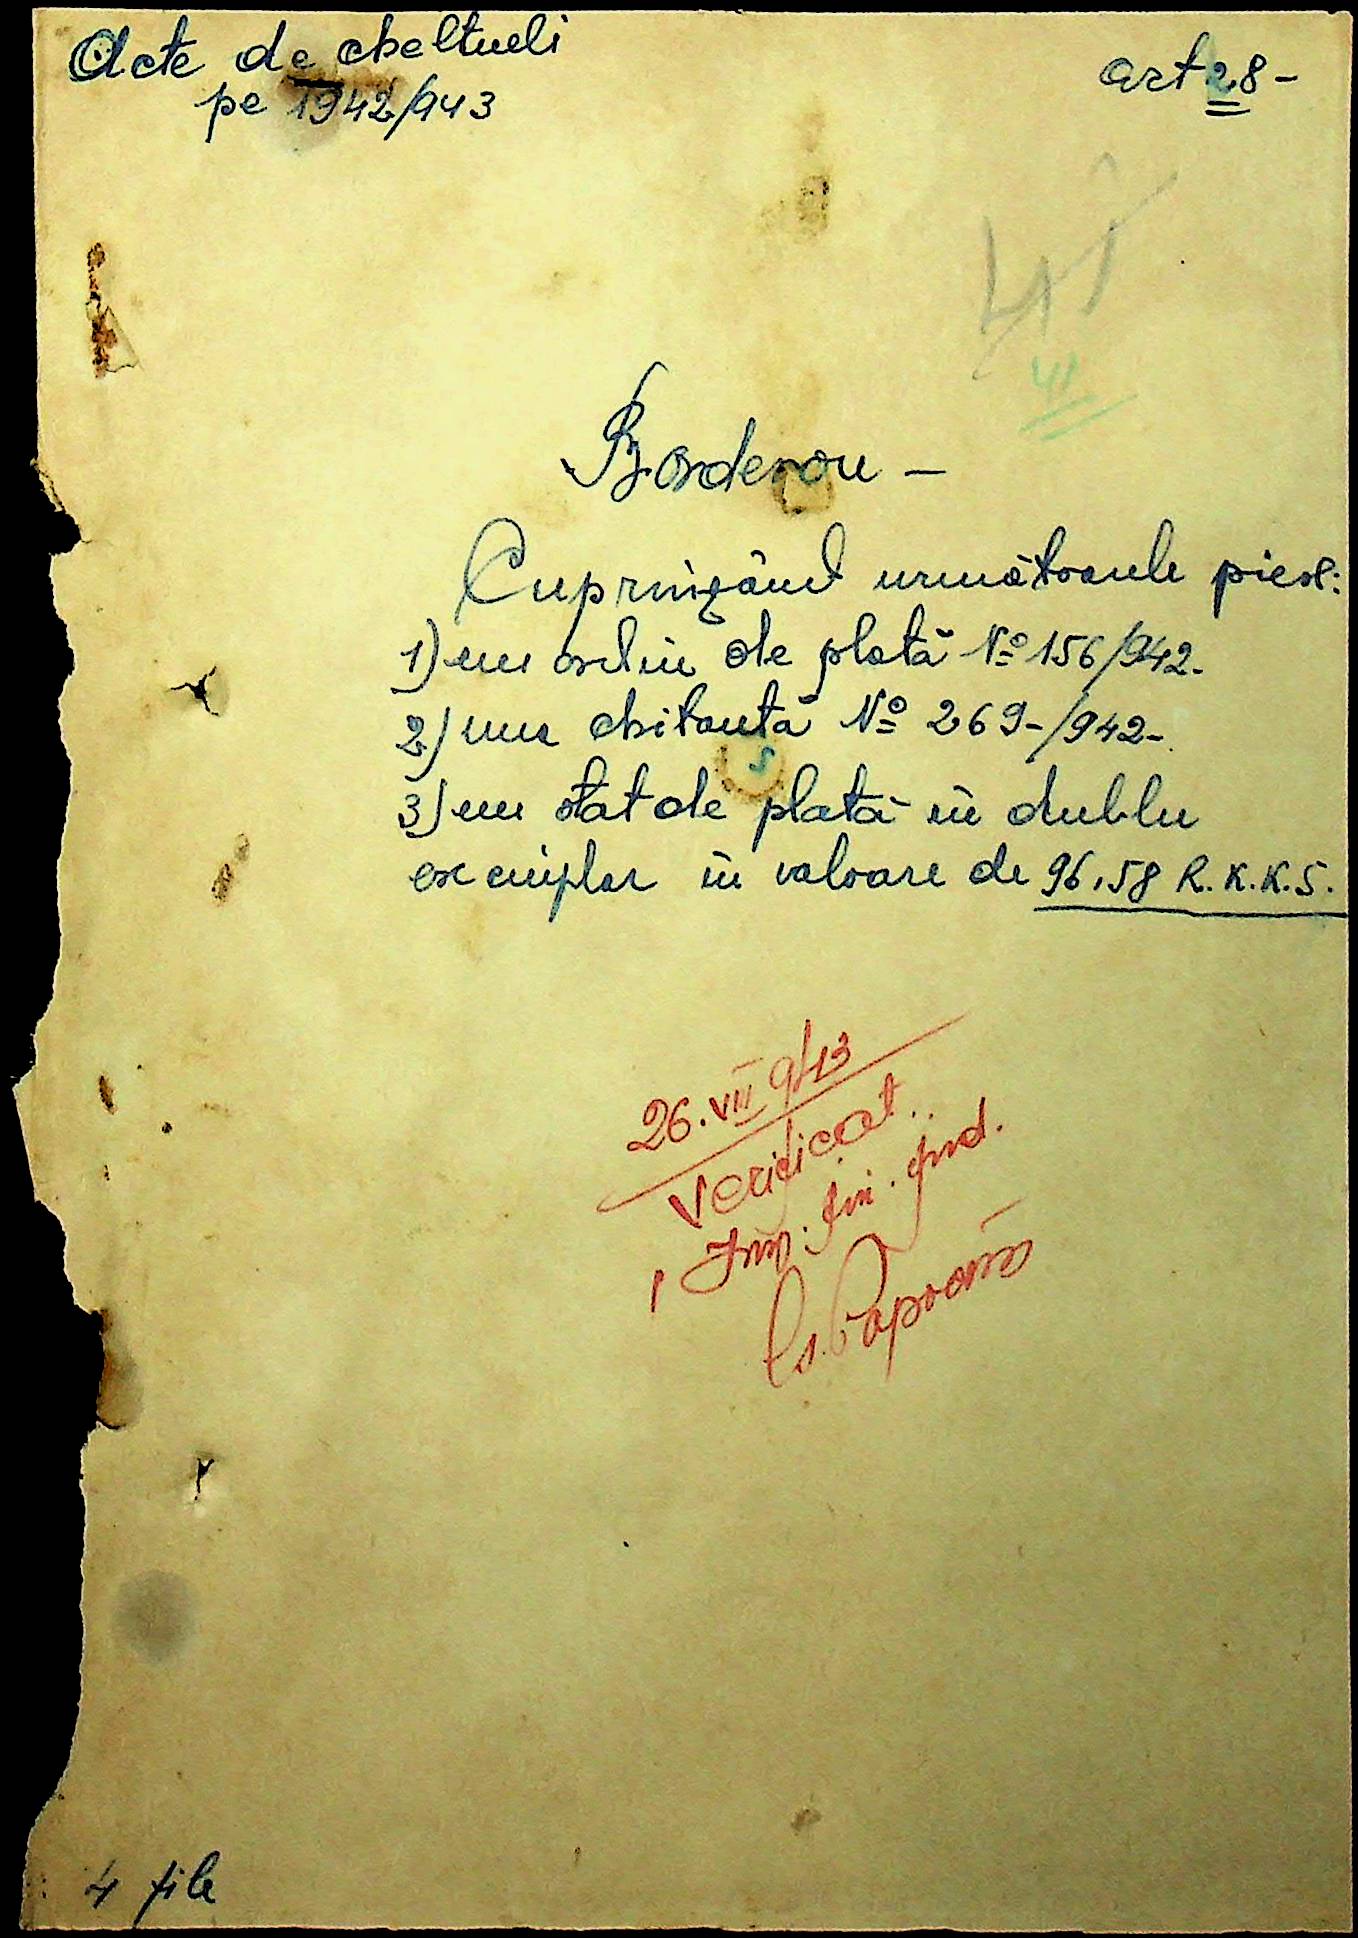 Acte de cheltueli
pe 1942/943
art 28-
41
Borderou -
Cuprinzând următoarele piese:
1) un ordin de plată № 156/942.
2) una chitanță № 269-/942-
3) un stat de plată în dublu
exemplar în valoare de 96,58 R.K.K.S.
26.VII 943
Verificat
Imp. fin. jud.
4 file